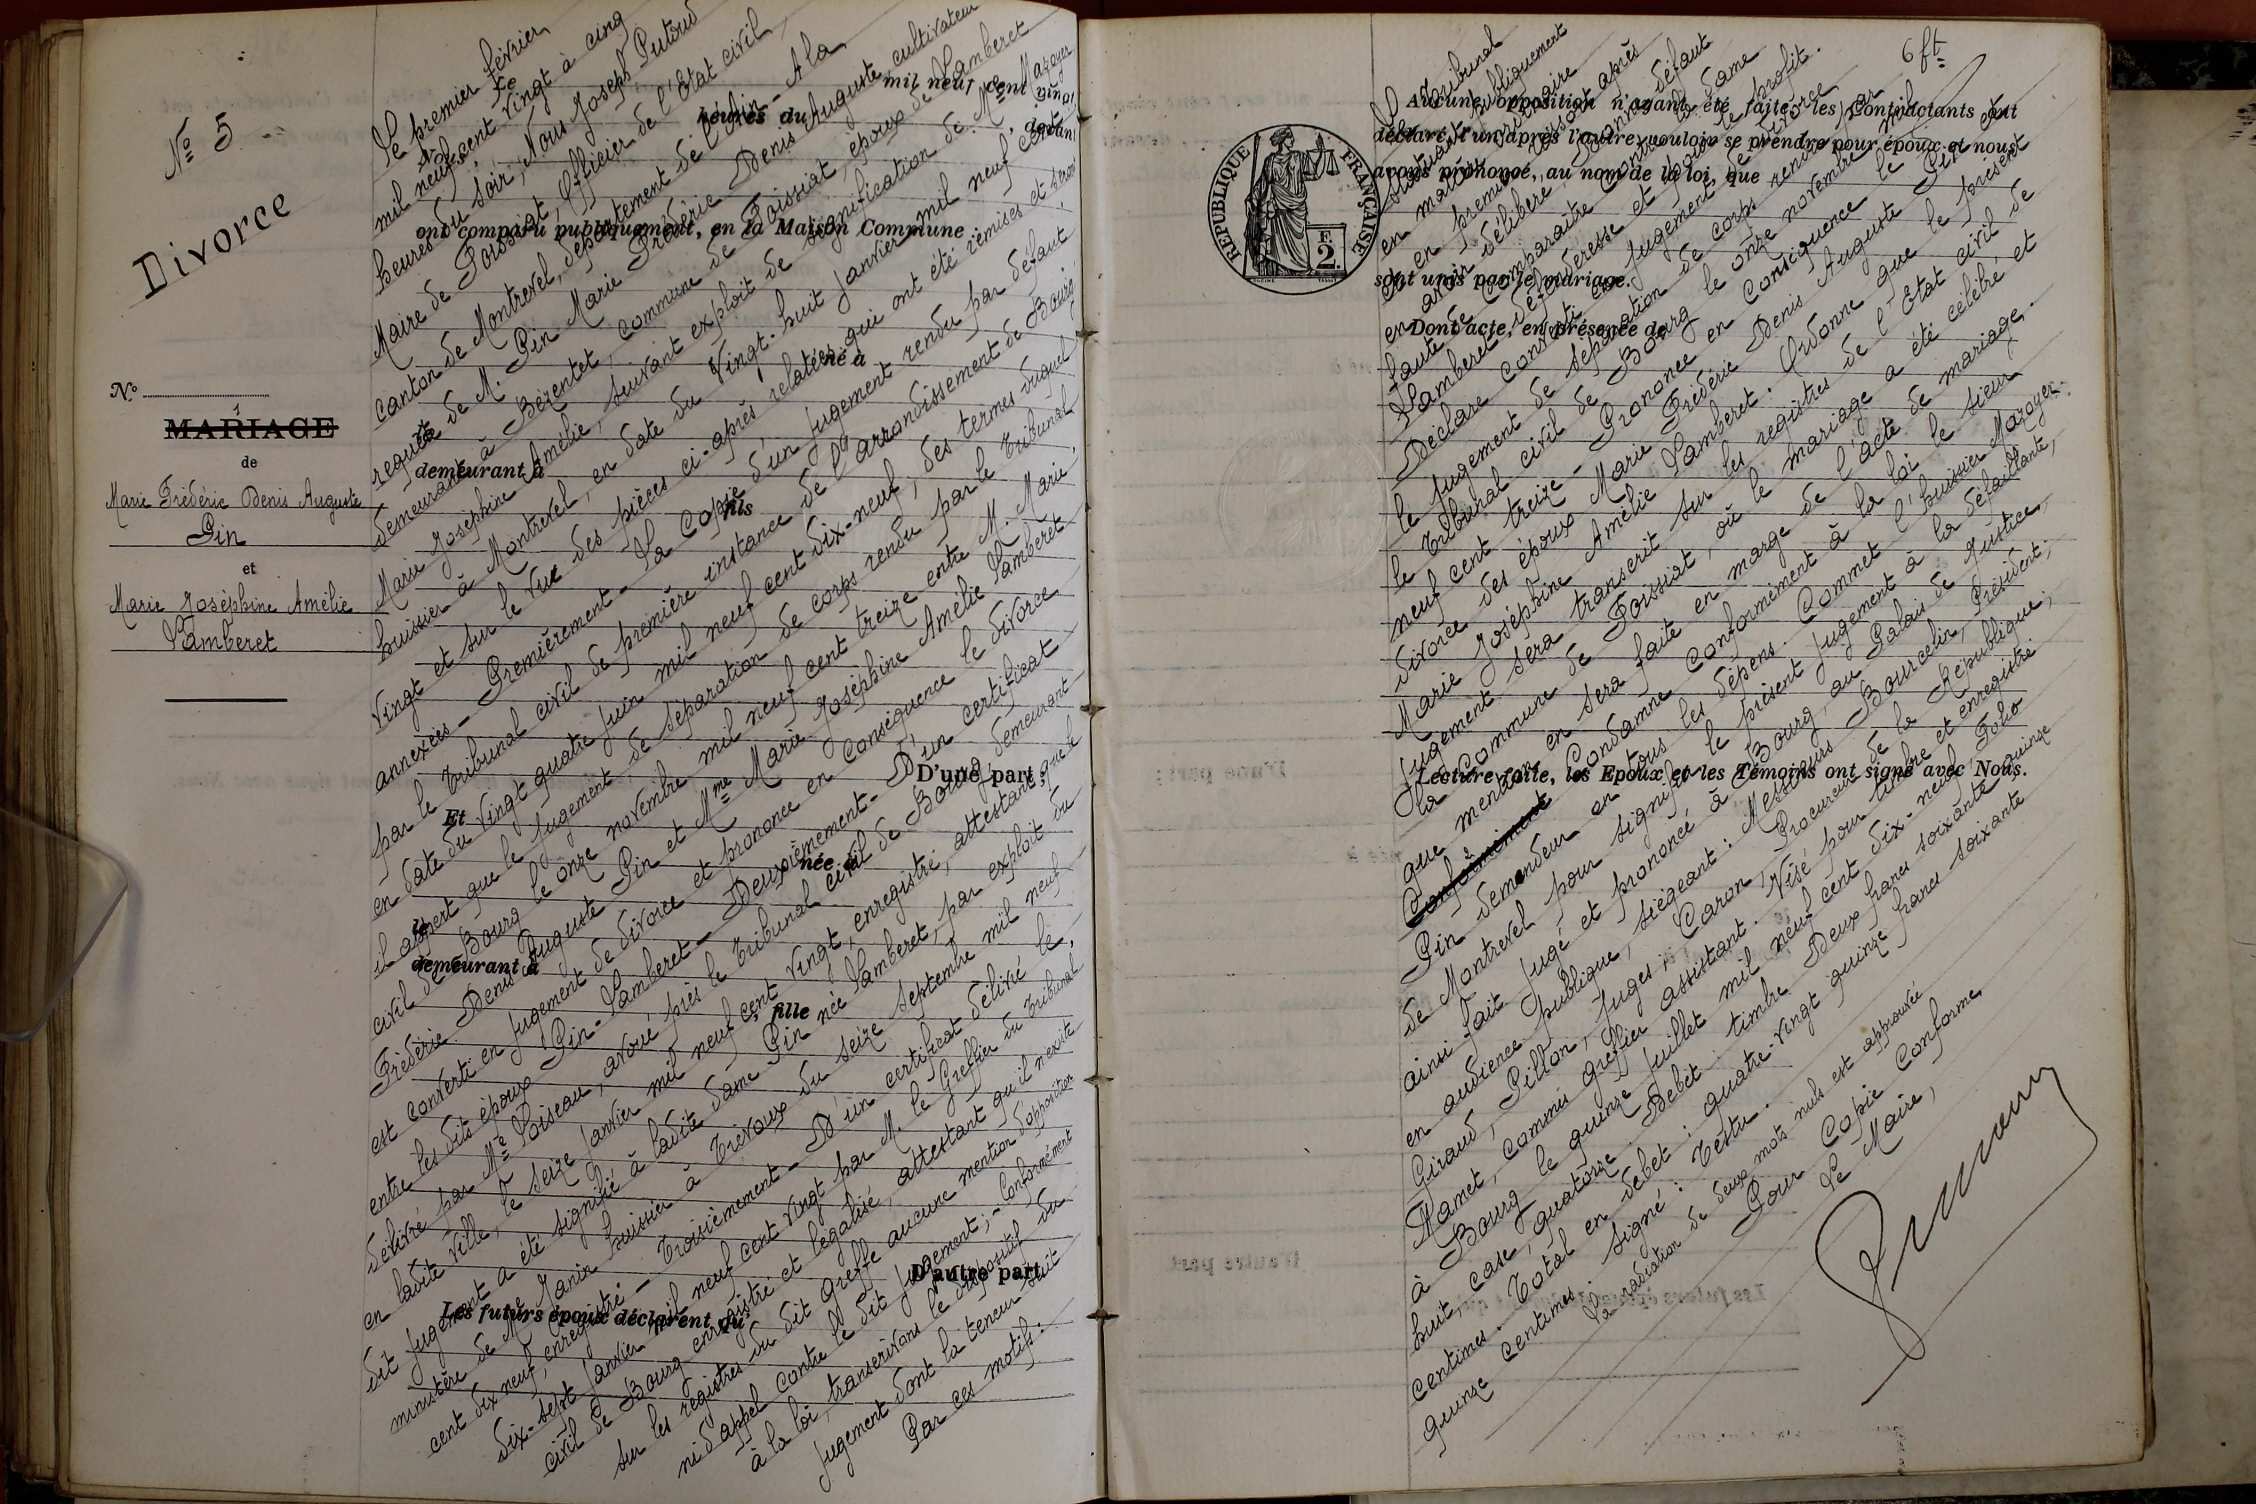 Nº 5
Divorce
Nº
MARIAGE
de
Marie Frédéric Denis Auguste
Pin
et
Marie Joséphine Amélie
Lamberet
Le premier février
mil neuf cent vingt à cinq
heures du soir, Nous Joseph Putoud
Maire de Foissiat, Officier de l'Etat civil,
canton de Montrevel, département de l'Ain - A la
requête de M. Pin Marie Frédéric Denis Auguste, cultivateur
demeurant à Bézentet, commune de Foissiat, époux de Lamberet
Marie Joséphine Amélie, suivant exploit de signification de Me Mazoyer
huissier à Montrevel, en date du vingt-huit janvier mil neuf cent
vingt et sur le vue des pièces ci-après relatées qui ont été remises et
annexées - Premièrement - La copie d'un jugement rendu par défaut
par le Tribunal civil de première instance de l'arrondissement de Bourg
en date du vingt quatre juin mil neuf cent dix-neuf, des termes duquel
il appert que le jugement de séparation de corps rendu par le Tribunal
civil de Bourg le onze novembre mil neuf cent treize entre M. Marie
Frédéric Denis Auguste Pin et Mme Marie Joséphine Amélie Lamberet
est converti en jugement de divorce et prononce en conséquence le divorce
entre les dits époux Pin-Lamberet - Deuxièmement - D'un certificat
délivré par Me Loiseau, avoué près le Tribunal civil de Bourg, demeurant
en ladite ville, le seize janvier mil neuf cent vingt, enregistré, attestant que le
dit jugement a été signifié à ladite dame Pin née Lamberet, par exploit du
ministère de Me Janin huissier à Trévoux du seize septembre mil neuf
cent dix neuf, enregistré - Troisièmement - D'un certificat délivré le
dix-sept janvier mil neuf cent vingt par M. le Greffier du Tribunal
civil de Bourg enregistré et légalisé, attestant qu'il n'existe
sur les registres du dit greffe aucune mention d'opposition
ni d'appel contre le dit jugement; - Conformément
à la loi, transcrivons le dispositif du
jugement dont la teneur suit
Par ces motifs:
mil neuf cent vingt
heures du
, devant
Nous,
ont comparu publiquement, en la Maison Commune :
né à
demeurant à
fils
D'une part ;
Et
née à
demeurant à
, fille
D'autre part.
Les futurs époux déclarent qu
6 ft
RÉPUBLIQUE FRANÇAISE
F.
2.
Le Tribunal
Statuant publiquement
en matière
et en premier ressort après
en avoir délibéré, donne défaut
faute de comparaître contre la dame
Lamberet défenderesse et pour le profit.
Déclare converti en jugement de divorce
le jugement de séparation de corps rendu par
le Tribunal civil de Bourg le onze novembre mil
neuf cent treize - Prononce en conséquence le
divorce des époux Marie Frédéric Denis Auguste Pin et
Marie Joséphine Amélie Lamberet. Ordonne que le présent
jugement sera transcrit sur les registres de l'Etat civil de
la commune de Foissiat, où le mariage a été célébré et
que mention en sera faite en marge de l'acte de mariage.
Conformément Condamne conformément à la loi le sieur
Pin demandeur en tous les dépens. Commet l'huissier Mazoyer
de Montrevel pour signifier le présent jugement à la défaillante,
ainsi fait jugé et prononcé à Bourg, au Palais de Justice,
en audience publique, siégeant: Messieurs Bourcelin, Président;
Giraud, Pillon, juges; Caron, Procureur de la République;
Mamet, commis greffier assistant. Visé pour timbre et enregistré
à Bourg le quinze juillet mil neuf cent dix-neuf, Folio
huit, case, quatorze. Debet: timbre Deux francs soixante quinze
centimes. Total en debet: quatre-vingt quinze francs soixante
quinze centimes. Signé: Testu.
La radiation de deux mots nuls est approuvée
Pour Copie Conforme,
Le Maire,
Aucune opposition n'ayant été faite, les Contractants ont
déclaré l'un après l'autre vouloir se prendre pour époux et nous
avons prononcé, au nom de la loi, que
sont unis par le mariage.
Dont acte, en présence de
Lecture faite, les Epoux et les Témoins ont signé avec Nous.